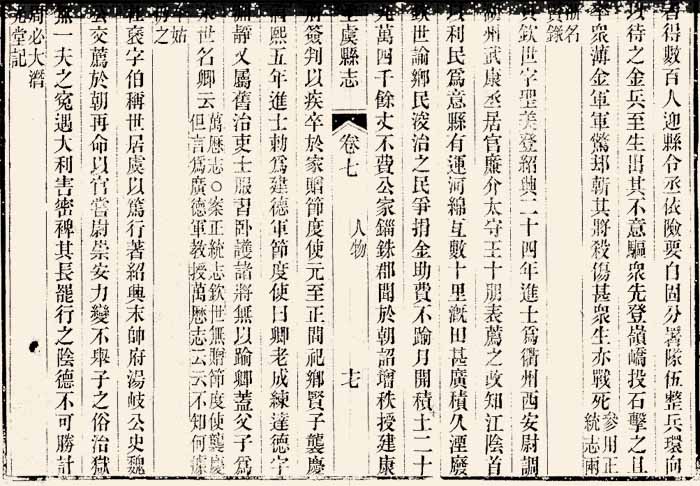 者得數百人迎縣令丞依險要自固分署隊伍整兵環向
以待之金兵至生出其不意驅衆先登嶺嶠投石擊之且
率衆薄金軍軍驚卻斬其將殺傷甚衆生亦戰死參用正
統志兩
浙名
賢錄
黃欽世字聖美登紹興二十四年進士爲衢州西安尉調
湖州武康丞居官廉介太守王十朋表薦之改知江陰首
以利民爲意縣有運河綿亙數十里漑田甚廣積久湮廢
欽世諭鄉民浚治之民爭捐金助費不踰月開積土二十
九萬四千餘丈不費公家錙銖郡聞於朝詔增秩授建康
上虞縣志 卷七 人物 十七
府簽判以疾卒於家贈節度使元至正間祀鄉賢子龔慶
淳熙五年進士勅爲建德軍節度使曰卿老成練達德宇
淵靜又屬舊治吏士服習卧護諸將無以踰卿蓋父子爲
宋世名卿云萬歷志○案正統志欽世無贈節度使龔慶
但言爲廣德軍教授萬歷志云云不知何據
姑
仍之
褒字伯稱世居虞以篤行著紹興末帥府湯岐公史魏
公交薦於朝再命以官嘗尉崇安力變不舉子之俗治獄
無一夫之寃遇大利害密裨其長罷行之陰德不可勝計
周必大濳
光堂記